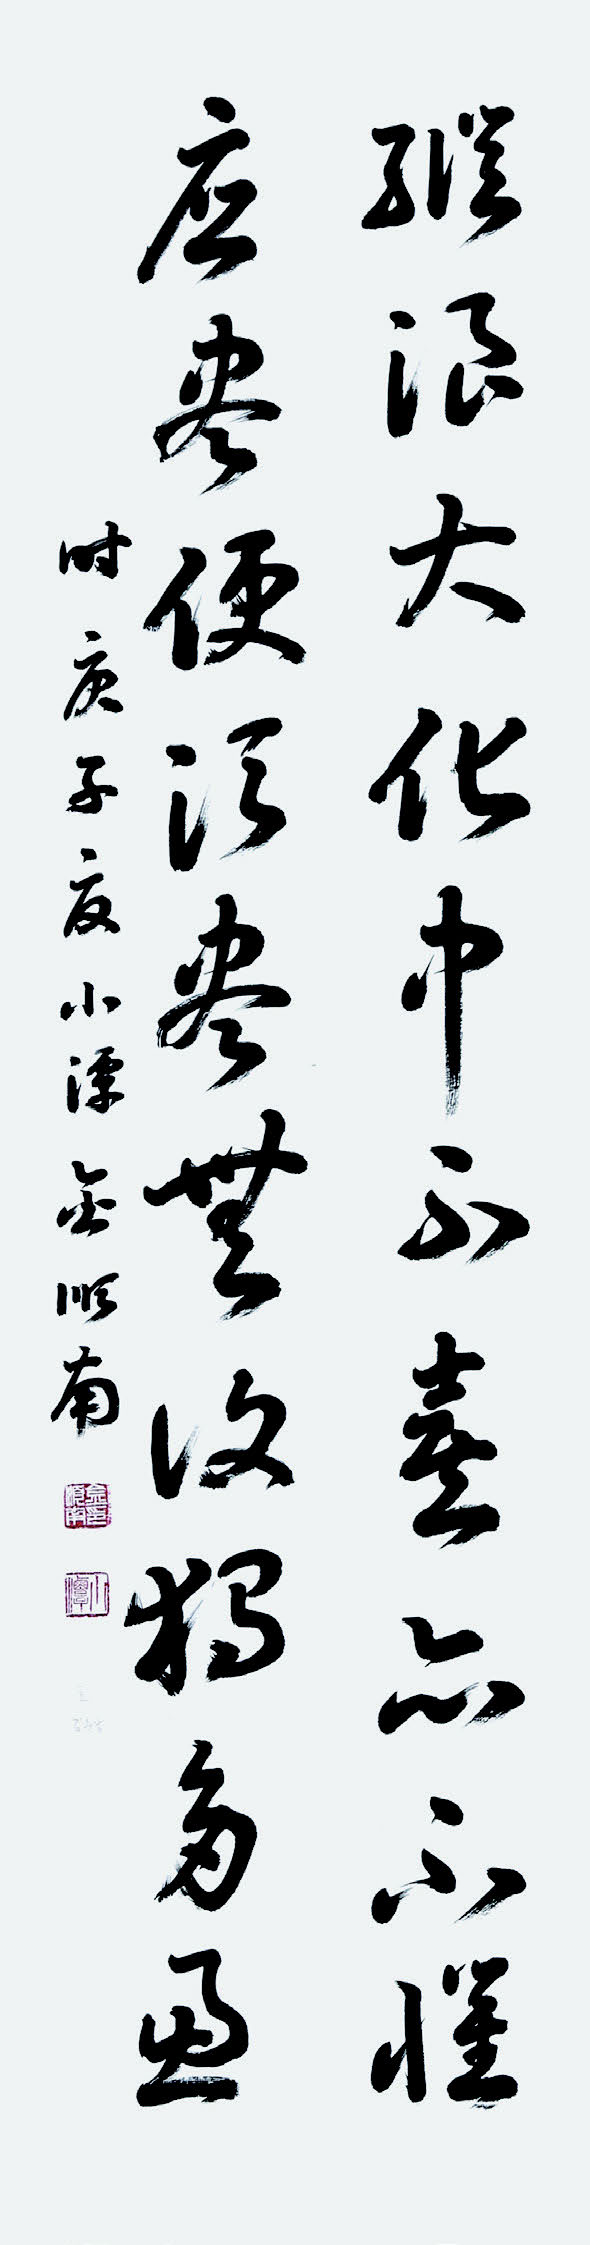 縱浪大化中不喜亦不懼
應盡便須盡無復獨多慮
時庚子夏小潭金順南